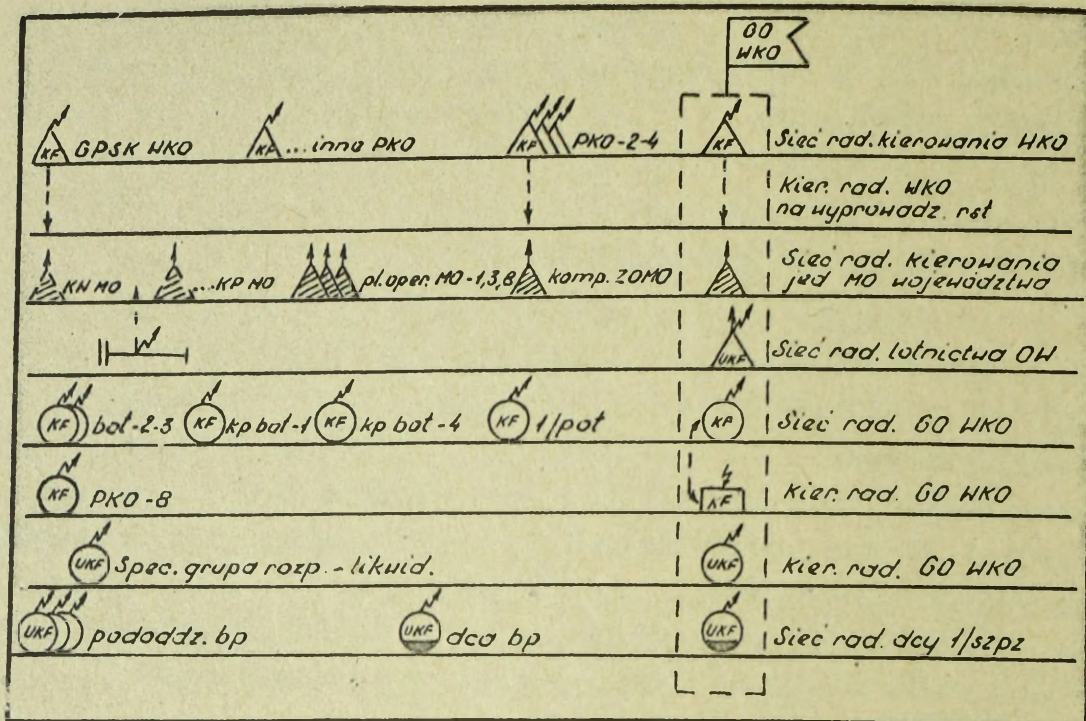 GO
WKO
KF GPSK WKO KF ...inne PKO KF PKO-2-4 KF Sieć rad. kierowania WKO
Kier. rad. WKO
na wyprowadz. rst
KW MO ...KP MO pl. oper. MO-1,3,8 komp. ZOMO Sieć rad. kierowania
jed MO województwa
UKF Sieć rad. lotnictwa OW
KF bot-2-3 KF kp bot-1 KF kp bot-4 KF 1/pot KF Sieć rad. GO WKO
KF PKO-8 KF Kier. rad. GO WKO
UKF Spec. grupa rozp.-likwid. UKF Kier. rad. GO WKO
UKF pododdz. bp UKF dca bp UKF Sieć rad. dcy 1/szpz